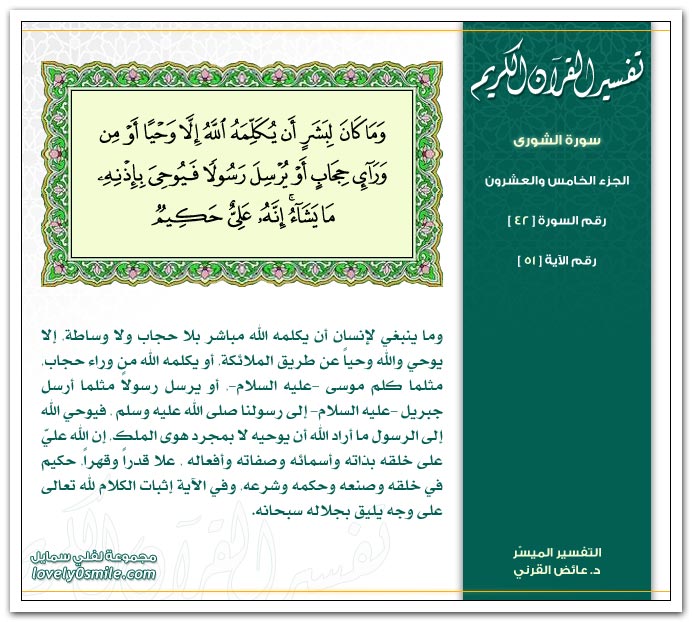 تفسير القرآن الكريم
سورة الشورى
الجزء الخامس والعشرون
رقم السورة [ ٤٢ ]
رقم الآية [ ٥١ ]
وَمَا كَانَ لِبَشَرٍ أَن يُكَلِّمَهُ ٱللَّهُ إِلَّا وَحْيًا أَوْ مِن
وَرَآيِٕ حِجَابٍ أَوْ يُرْسِلَ رَسُولًا فَيُوحِىَ بِإِذْنِهِۦ
مَا يَشَآءُ ۚ إِنَّهُۥ عَلِىٌّ حَكِيمٌ
وما ينبغي لإنسان أن يكلمه الله مباشر بلا حجاب ولا وساطة، إلا
يوحي والله وحياً عن طريق الملائكة، أو يكلمه الله من وراء حجاب،
مثلما كلم موسى -عليه السلام-، أو يرسل رسولاً مثلما أرسل
جبريل -عليه السلام- إلى رسولنا صلى الله عليه وسلم , فيوحي الله
إلى الرسول ما أراد الله أن يوحيه لا بمجرد هوى الملك، إن الله عليّ
على خلقه بذاته وأسمائه وصفاته وأفعاله , علا قدراً وقهراً، حكيم
في خلقه وصنعه وحكمه وشرعه، وفي الآية إثبات الكلام لله تعالى
على وجه يليق بجلاله سبحانه.
التفسير الميسّر
د. عائض القرني
مجموعة لفلي سمايل
lovely0smile.com
تفسير القرآن الكريم